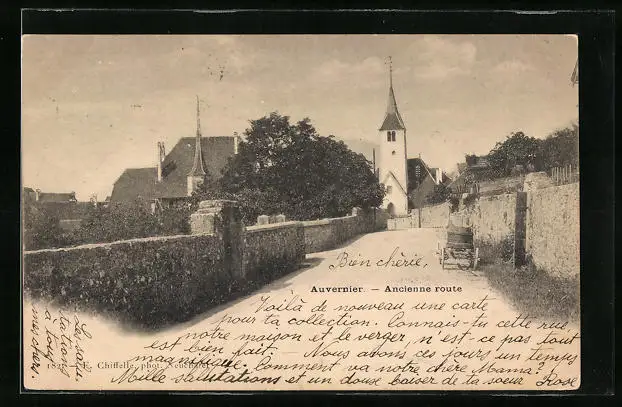 Bien chérie,
Auvernier. - Ancienne route
Voilà de nouveau une carte
pour ta collection. Connais-tu cette rue,
notre maison et le verger, n'est-ce pas tout
est bien fait - Nous avons ces jours un temps
magnifique. Comment va notre chère Mama?
Mille salutations et un doux baiser de ta sœur Rose
Chiffelle, phot. Neuchâtel
à tous
mes chers.